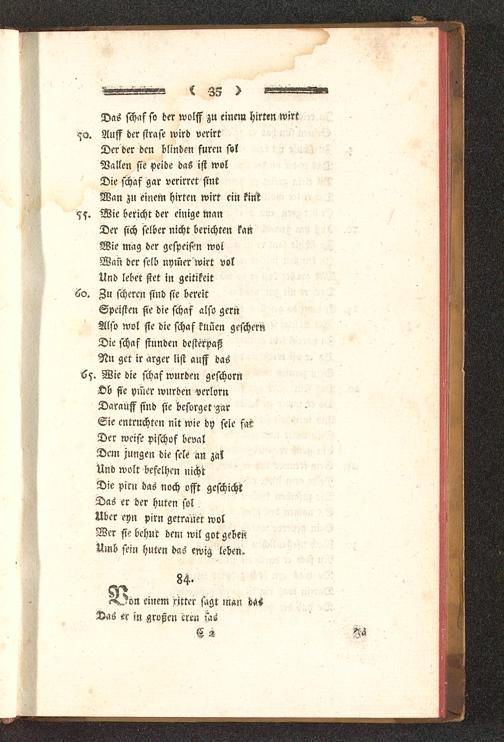 ( 35 )
Das schaf so der wolff zu einem hirten wirt
50. Auff der strase wird verirt
Der der den blinden furen sol
Vallen sie peide das ist wol
Die schaf gar verirret sint
Wan zu einem hirten wirt ein kint
55. Wie bericht der einige man
Der sich selber nicht berichten kan
Wie mag der gespeisen wol
Wan̄ der selb nym̄er wirt vol
Und lebet stet in geitikeit
60. Zu scheren sind sie bereit
Speisten sie die schaf also gern
Also wol sie die schaf kuñen geschern
Die schaf stunden desterpaß
Nu get ir arger list auff das
65. Wie die schaf wurden geschorn
Ob sie ym̄er wurden verlorn
Darauff sind sie besorget gar
Sie entruchten nit wie dy sele far
Der weise pischof beval
Dem jungen die sele an zal
Und wolt befelhen nicht
Die pirn das noch offt geschicht
Das er der huten sol
Uber eyn pirn getrauet wol
Wer sie behut dem wil got geben
Umb sein huten das ewig leben.
84.
Von einem ritter sagt man das
Das er in großen eren sas
C 2